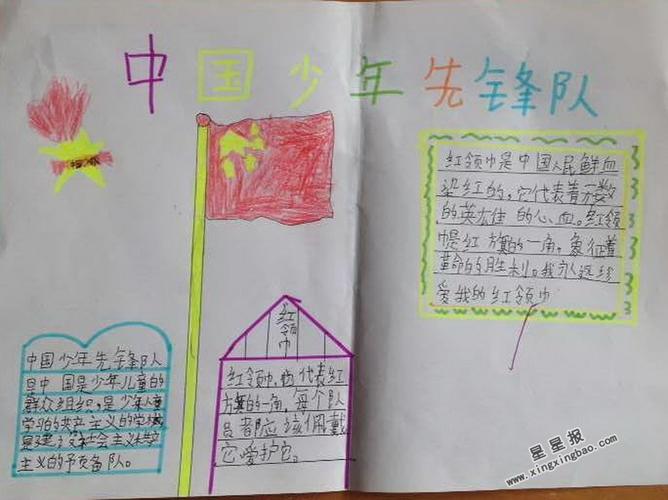 中国少年先锋队
红领巾是中国人民鲜血
染红的,它代表着无数
的英大佳 的心血。红领
巾是红 旗的一角,象征着
革命的胜利。我永远
爱我的红领巾
红领巾
红领巾, 代表红
旗的一角,每个队
员都应该佩戴
它爱护它。
中国少年先锋队
是中国是少年儿童的
群众组织,是少年儿童
学习的共产主义的学校
是建 社会主义 共产
主义的予备队。
星星报
www.xingxingbao.com